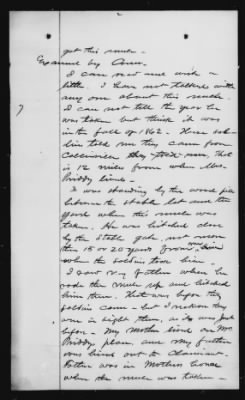 got this mule -
Examined by Com.
I can read and write a
little. I have not talked with
any one about this mule.
I can not tell the year he
was taken but think it was
in the fall of 1862. I
him told me they came from
they told me, that
is 12 miles from where Mrs.
Priddy lives -
I was standing by the wood pile
between the stable lot and the
yard when this mule was
taken. He was hitched close
by the stable gate, not more
than 15 or 20 yards from
when the soldiers took him.
I saw my father when he
rode the mule up and hitched
him there. That was before the
soldiers came - but I reckon they
were in sight then, as it was just
before - My mother lived on Mrs.
Priddy place, and my father
was hired out to
Father was in Mothers house
when the mule was taken -